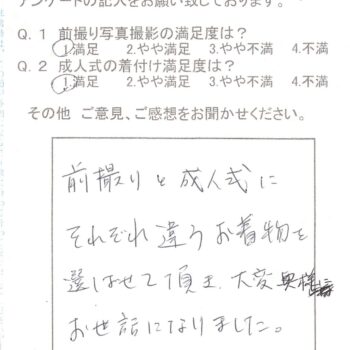 アンケートの記入をお願い致しております。
Q.1 前撮り写真撮影の満足度は?
1.満足 2.やや満足 3.やや不満 4.不満
Q.2 成人式の着付け満足度は?
1.満足 2.やや満足 3.やや不満 4.不満
その他 ご意見、ご感想をお聞かせください。
前撮りと成人式に
それぞれ違うお着物を
選ばせて頂き、大変奥様に
お世話になりました。